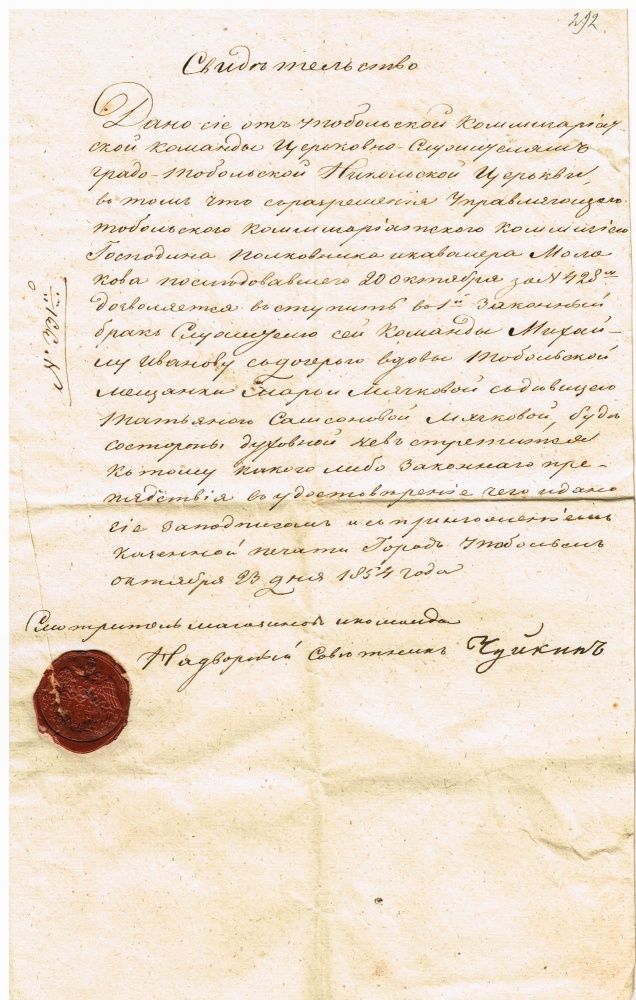 292.
Свидѣтельство
Дано сіе отъ Тобольской Коммисаріат-
ской команды Церьковно-Служителямъ
градо-Тобольской Никольской Церькви,
въ томъ что съразрешенія Управляющего
тобольскою Коммисаріатскою Коммисіею
Господина Полковника икавалера Моля-
кова последовавшего 20 октября за N 428м
дозволяется въступить во 1й Законный
бракъ Служителю сей Команды Михай-
лу Иванову съдочерью вдовы Тобольской
мещанки Мячковой съдевицею
Татьяною Самсоновой Мячковой, буде
состороны духовной невъстретится
къ тому какого либо Законнаго пре-
пядствія въ удостоверѣніе чего идано
сіе заподписомъ и съ приложеніемъ
казенной печати Городъ Тобольскъ
октября 23 дня 1854 года
Смотритель магазиновъ икоманды
Надворный Совѣтникъ Чуйкинъ